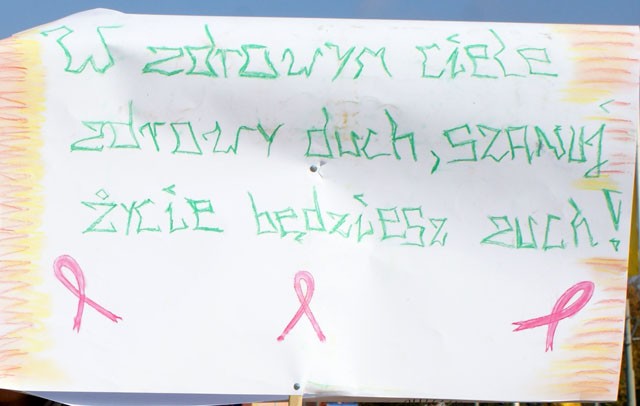 W zdrowym ciele
zdrowy duch, SZANUJ
życie będziesz zuch!